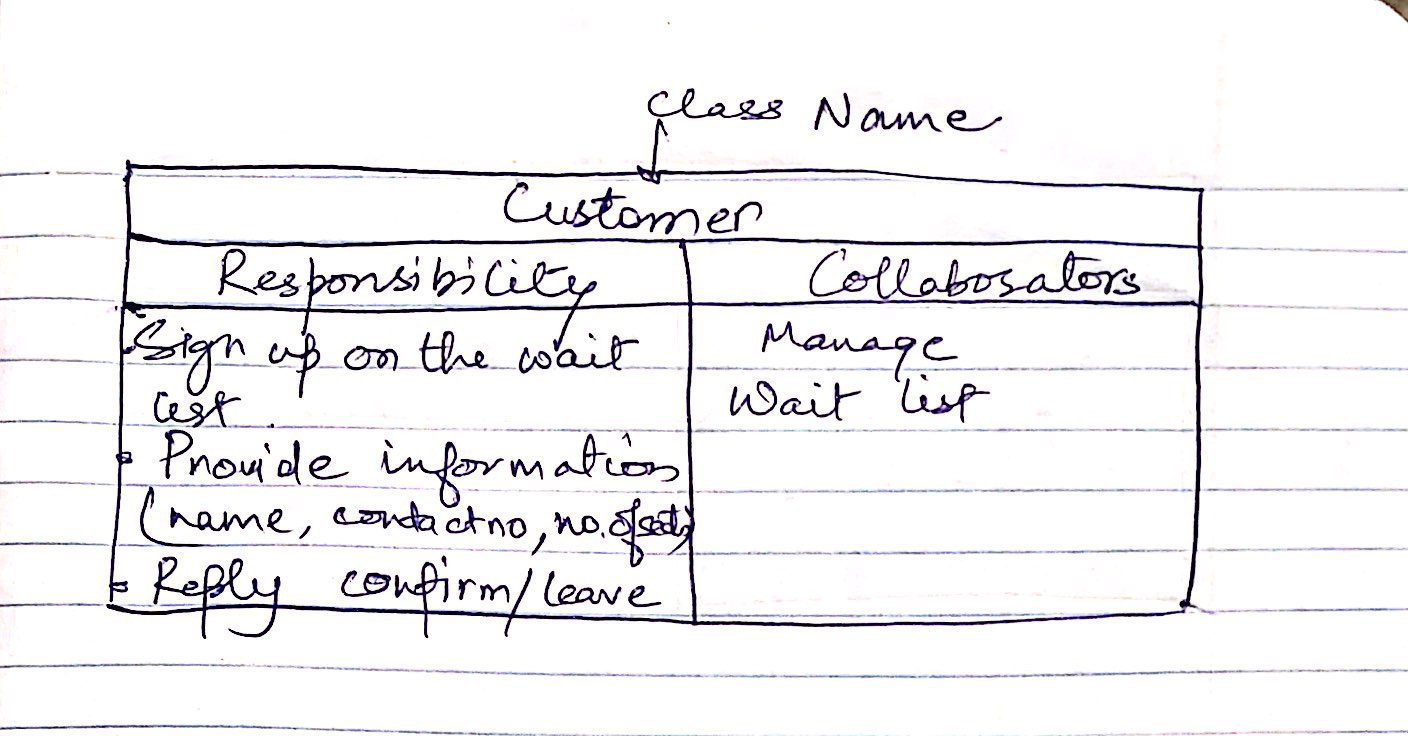 Class Name
Customer
Responsibility Collaborators
Sign up on the wait
list.
Provide information
(name, contact no, no. of
Reply confirm/leave
Manage
Wait list